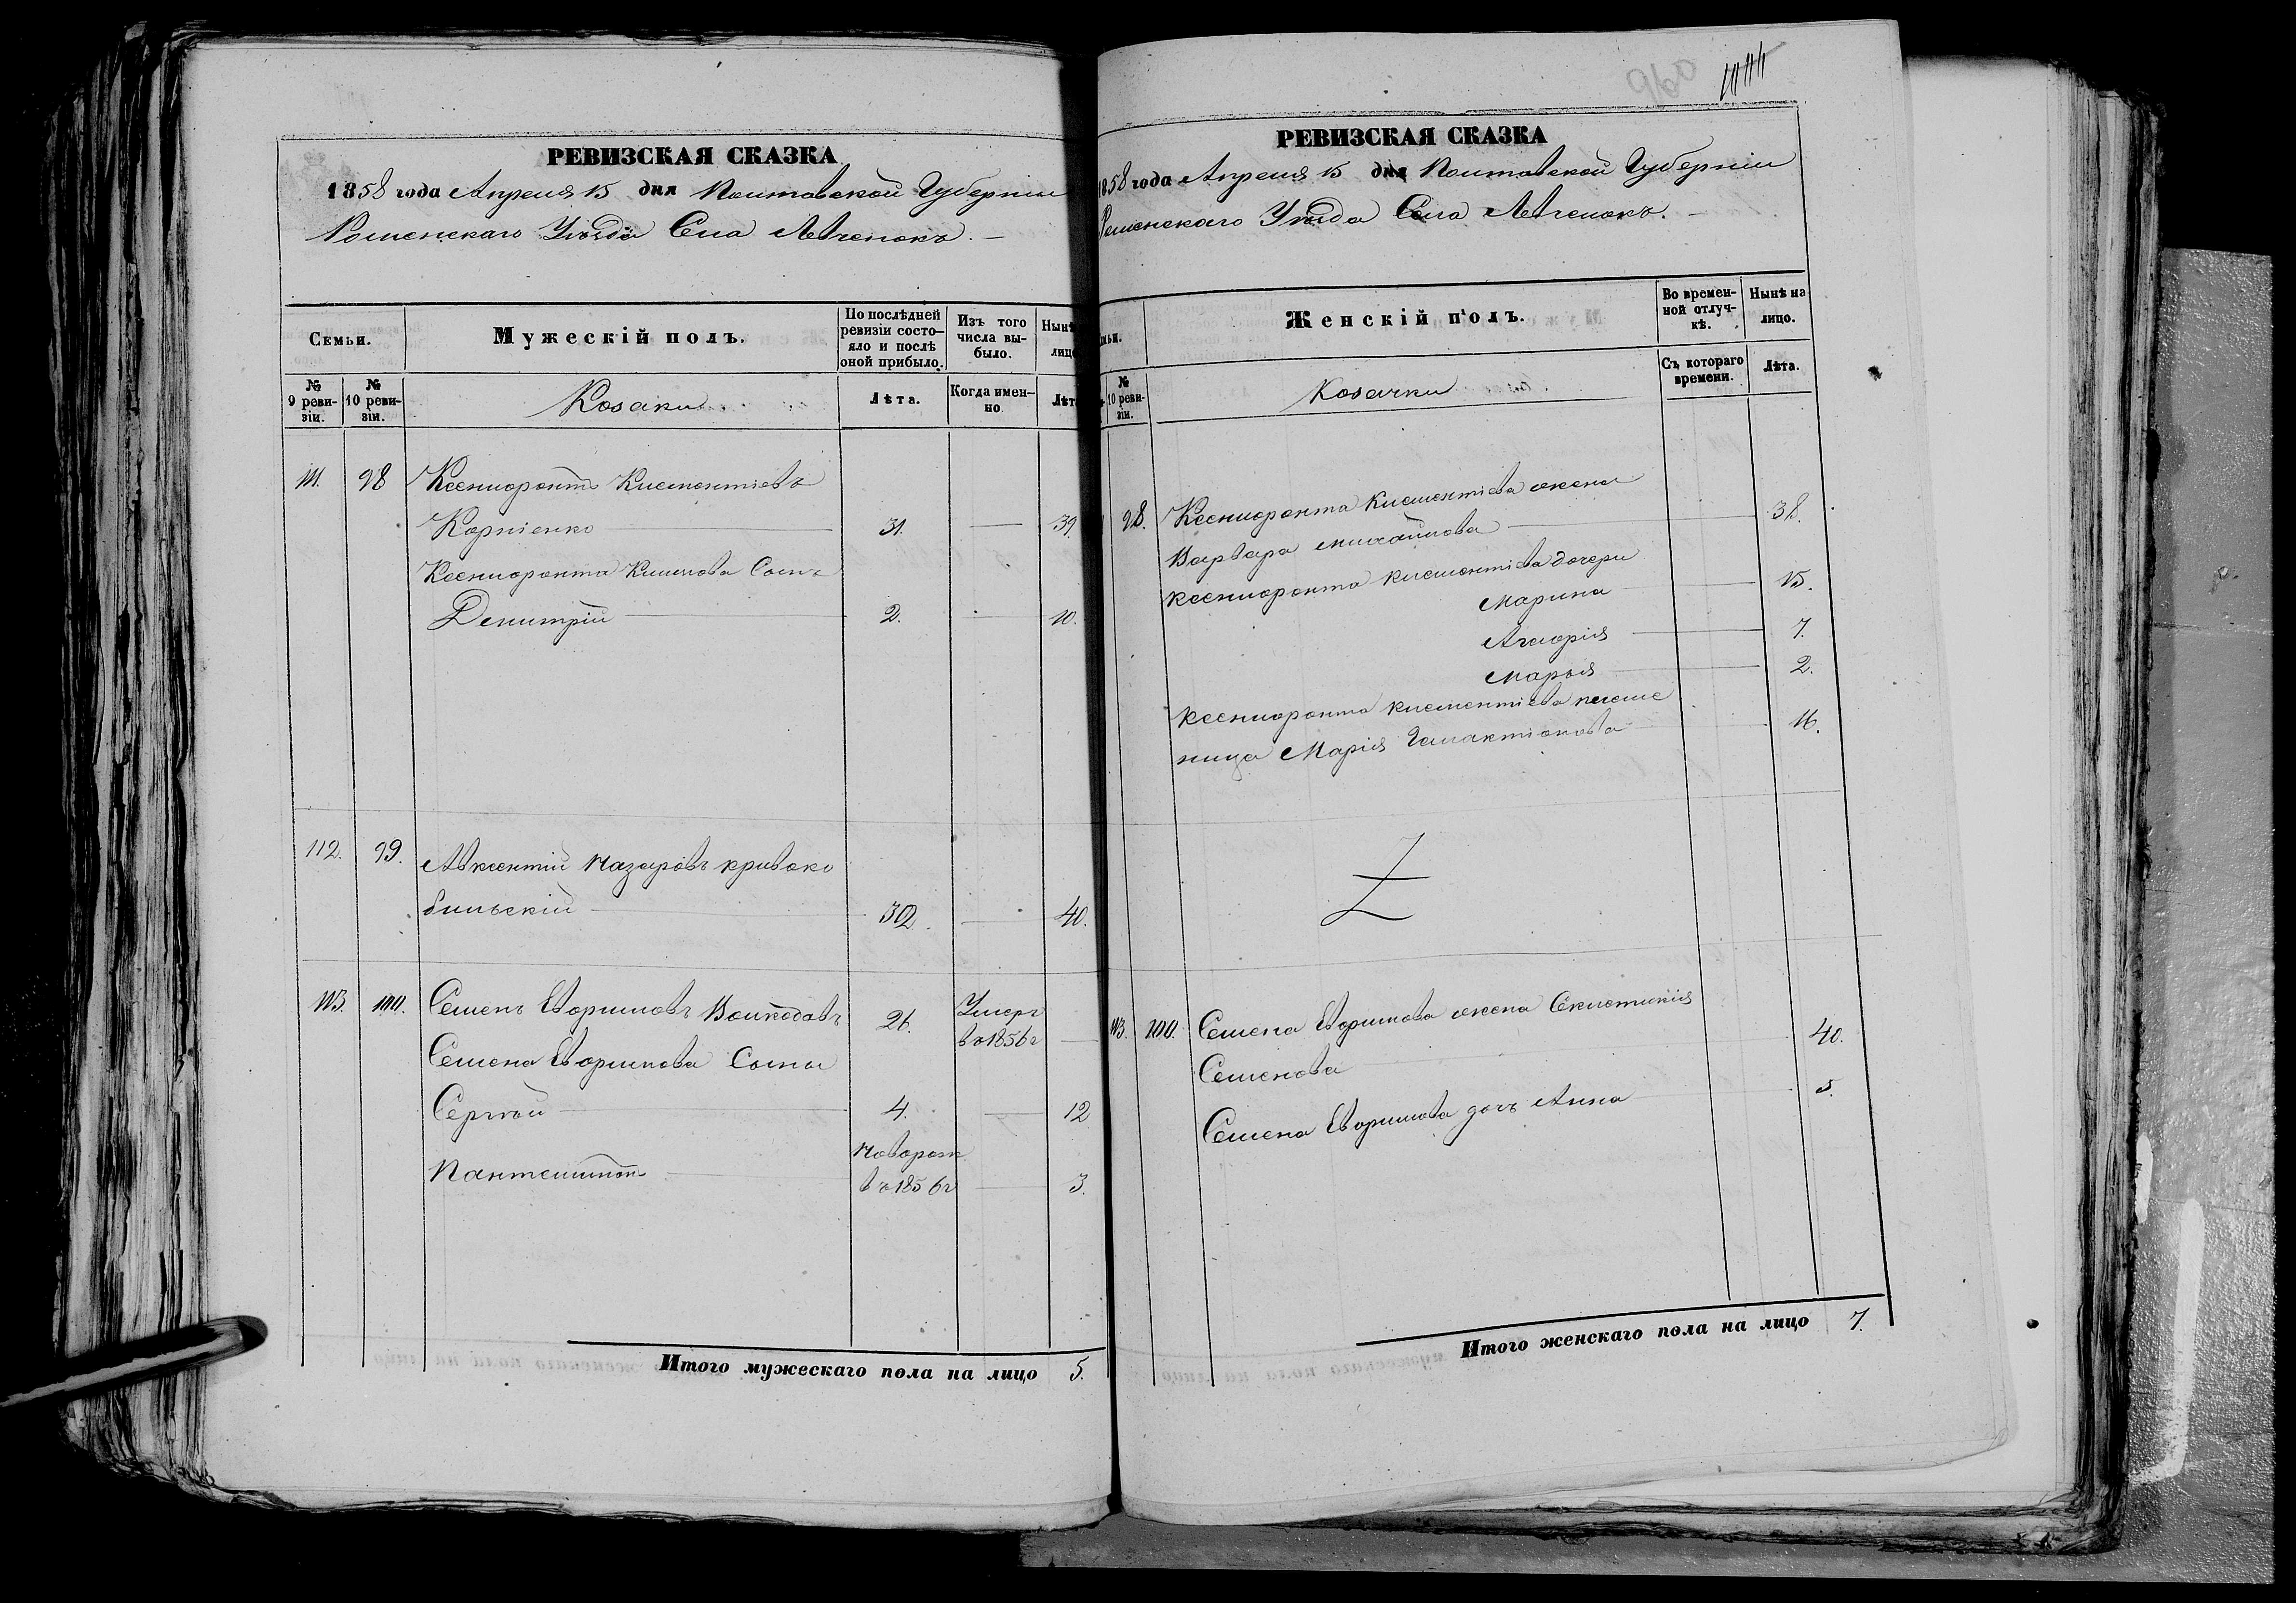 960
РЕВИЗСКАЯ СКАЗКА
1858 года Апреля 15 дня Полтавской Губерніи
Роменскаго Уѣзда Села
Семьи.
Мужескій полъ.
По послѣдней ревизіи состояло и послѣ оной прибыло.
Изъ того числа выбыло.
Нынѣ
лицо
№ 9 ревизіи.
№ 10 ревизіи.
Козаки
Лѣта.
Когда именно.
Лѣт
111. 98 Ксенофонтъ Клементіевъ
Корніенко 31. — 39.
Ксенофонта Климова Сынъ
Димитрій 2. — 10.
112. 99. Авксентій Назаровъ Кривоко
бильскій 32. — 40.
113. 100. Семенъ Ефримовъ Волкодавъ 26. Умеръ
въ 1856г —
Семена Ефримова Сыны
Сергѣй 4. — 12
Пантелимонъ Новорож
въ 1856г — 3.
Итого мужескаго пола на лицо 5.
РЕВИЗСКАЯ СКАЗКА
1858 года Апреля 15 дня Полтавской Губерніи
Роменскаго Уѣзда Села
Женскій полъ.
Во временной отлучкѣ.
Нынѣ на лицо.
№ 10 ревизіи.
Козачки
Съ котораго времени.
Лѣта.
98. Ксенофонта Клементіева жена
Варвара Михайлова 38.
Ксенофонта Клементіева дочери
Марина 15.
7.
Марья 2.
Ксенофонта Клементіева племе
ница Марія Галактіонова 16.
113. 100. Семена Ефримова жена
Семенова 40.
Семена Ефримова дочь Анна 5.
Итого женскаго пола на лицо 7.